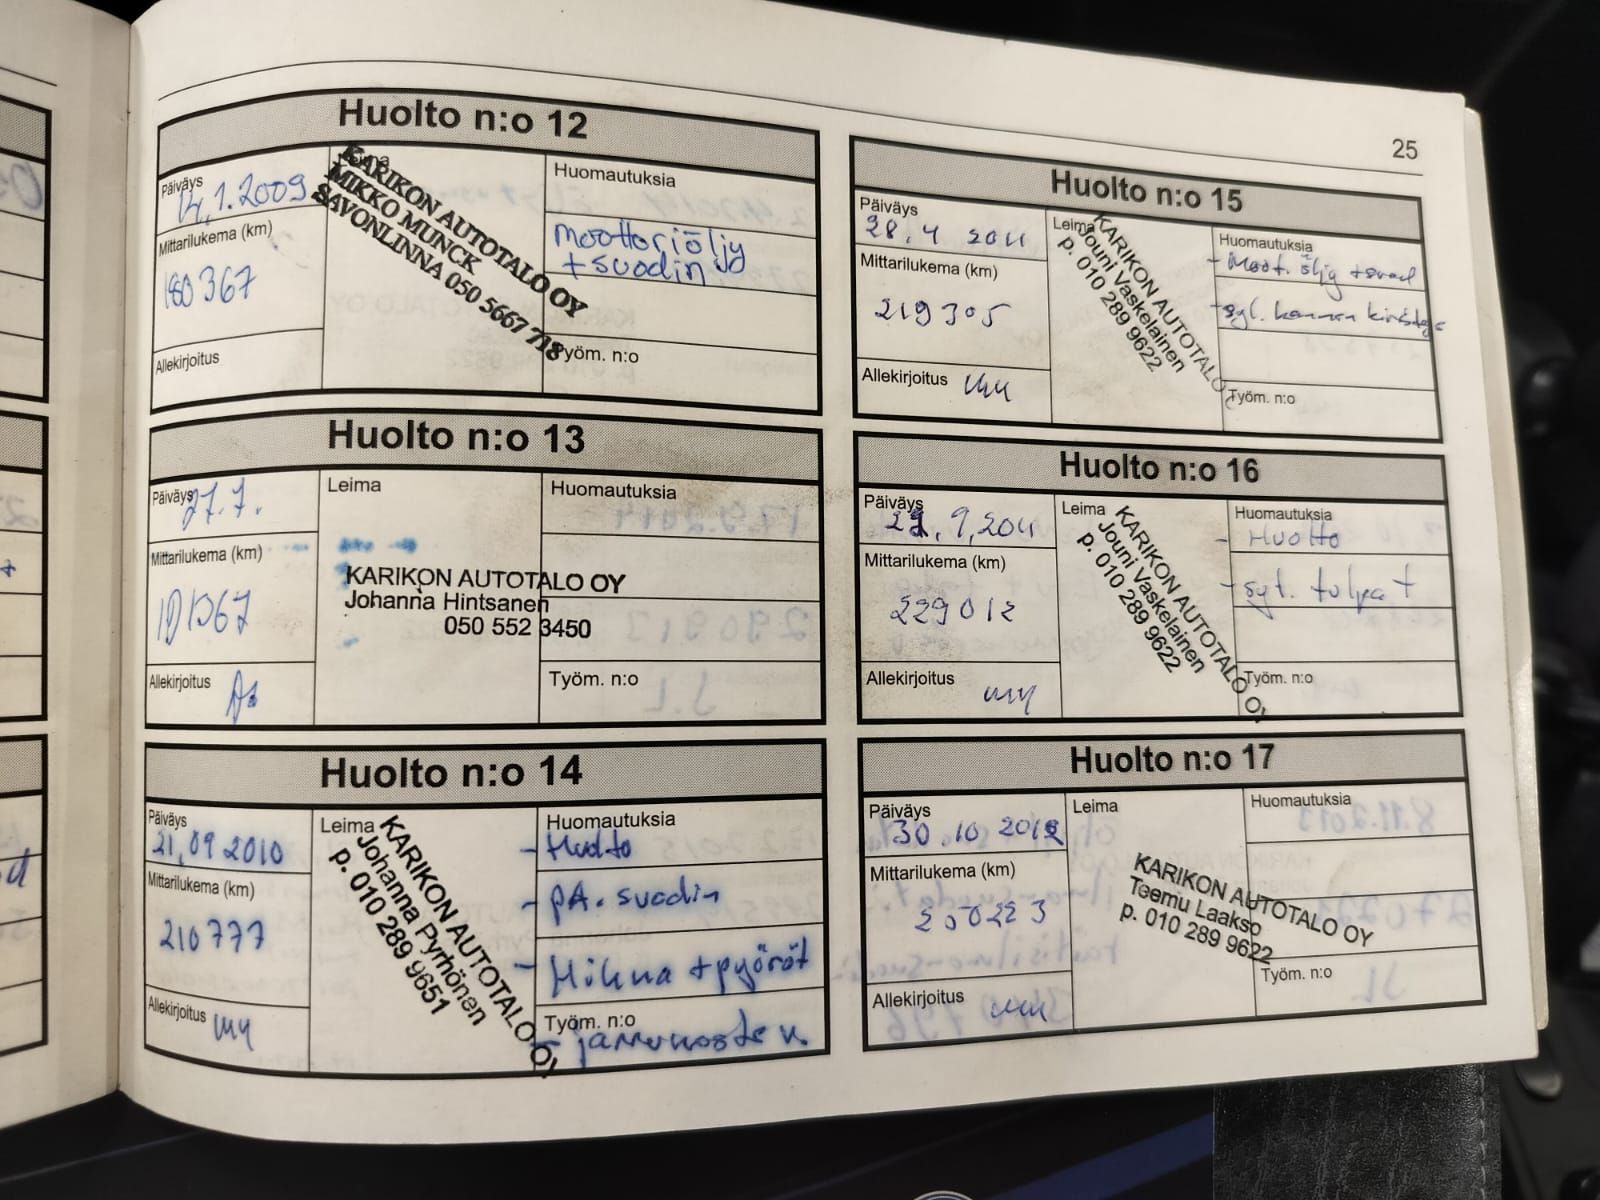 25
Huolto n:o 12
Päiväys
14.1.2009
Mittarilukema (km)
180 367
Allekirjoitus
KARIKON AUTOTALO OY
MIKKO MUNCK
SAVONLINNA 050 5667 718
Huomautuksia
moottoriöljy
+ suodin
Työm. n:o
Huolto n:o 13
Päiväys
27.7.
Mittarilukema (km)
Allekirjoitus
Leima
KARIKON AUTOTALO OY
Johanna Hintsanen
050 552 3450
Huomautuksia
Työm. n:o
Huolto n:o 14
Päiväys
21,09 2010
Mittarilukema (km)
210 777
Allekirjoitus
Leima
KARIKON AUTOTALO OY
Johanna Pyrhönen
p. 010 289 9651
Huomautuksia
- Huolto
- PA. suodin
- Hihna + pyörät
Työm. n:o
- jarrunoste n.
Huolto n:o 15
Päiväys
28.4 2011
Mittarilukema (km)
219 305
Allekirjoitus
Leima
KARIKON AUTOTALO
Jouni Vaskelainen
p. 010 289 9622
Huomautuksia
- Moot. öljy + suod
- syl. kannen
Työm. n:o
Huolto n:o 16
Päiväys
9,2011
Mittarilukema (km)
229 012
Allekirjoitus
Leima
KARIKON AUTOTALO OY
Jouni Vaskelainen
p. 010 289 9622
Huomautuksia
- Huolto
- syt. tulpat
Työm. n:o
Huolto n:o 17
Päiväys
30.10 2012
Mittarilukema (km)
250223
Allekirjoitus
Leima
KARIKON AUTOTALO OY
Teemu Laakso
p. 010 289 9622
Huomautuksia
Työm. n:o